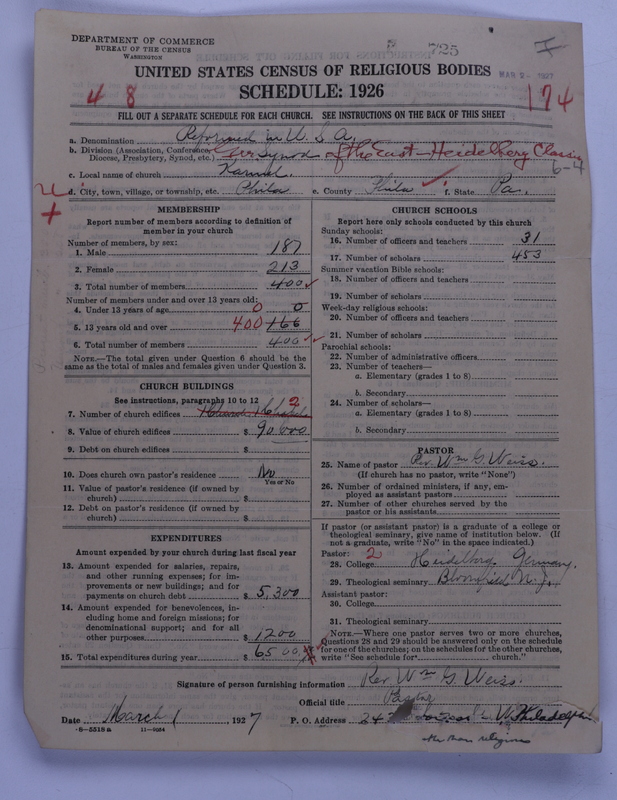 DEPARTMENT OF COMMERCE
BUREAU OF THE CENSUS
WASHINGTON
725
MAR 2 - 1927
UNITED STATES CENSUS OF RELIGIOUS BODIES
SCHEDULE: 1926
4 8
174
FILL OUT A SEPARATE SCHEDULE FOR EACH CHURCH. SEE INSTRUCTIONS ON THE BACK OF THIS SHEET
a. Denomination Reformed in U. S. A.
b. Division (Association, Conference, Diocese, Presbytery, Synod, etc.) Synod of the East - Heidelberg Classis
6-4
c. Local name of church Karmel.
d. City, town, village, or township, etc. Phila e. County Phila f. State Pa.
MEMBERSHIP
Report number of members according to definition of
member in your church
Number of members, by sex:
1. Male 187
2. Female 213
3. Total number of members 400
Number of members under and over 13 years old:
4. Under 13 years of age 0 0
5. 13 years old and over 400 166
6. Total number of members 400
NOTE.—The total given under Question 6 should be the
same as the total of males and females given under Question 3.
CHURCH BUILDINGS
See instructions, paragraphs 10 to 12
7. Number of church edifices 2
8. Value of church edifices $ 90,000
9. Debt on church edifices $
10. Does church own pastor's residence No
Yes or No
11. Value of pastor's residence (if owned by
church) $
12. Debt on pastor's residence (if owned by
church) $
EXPENDITURES
Amount expended by your church during last fiscal year
13. Amount expended for salaries, repairs,
and other running expenses; for im-
provements or new buildings; and for
payments on church debt $ 5,300
14. Amount expended for benevolences, in-
cluding home and foreign missions; for
denominational support; and for all
other purposes $ 1200
15. Total expenditures during year $ 6500
CHURCH SCHOOLS
Report here only schools conducted by this church
Sunday schools:
16. Number of officers and teachers 31
17. Number of scholars 453
Summer vacation Bible schools:
18. Number of officers and teachers
19. Number of scholars
Week-day religious schools:
20. Number of officers and teachers
21. Number of scholars
Parochial schools:
22. Number of administrative officers
23. Number of teachers—
a. Elementary (grades 1 to 8)
b. Secondary
24. Number of scholars—
a. Elementary (grades 1 to 8)
b. Secondary
PASTOR
25. Name of pastor Rev. Wm G. Weiss.
(If church has no pastor, write "None")
26. Number of ordained ministers, if any, em-
ployed as assistant pastors
27. Number of other churches served by the
pastor or his assistants
If pastor (or assistant pastor) is a graduate of a college or
theological seminary, give name of institution below. (If
not a graduate, write "No" in the space indicated.)
Pastor: 2
28. College Heidelberg, Germany.
29. Theological seminary Bloomfield N. J.
Assistant pastor:
30. College
31. Theological seminary
NOTE.—Where one pastor serves two or more churches,
Questions 28 and 29 should be answered only on the schedule
for one of the churches; on the schedules for the other churches,
write "See schedule for church."
Signature of person furnishing information Rev Wm G. Weiss.
Official title Pastor
Date March 1 1927 P. O. Address W. Philadelphia
8-5518 a 11-9034